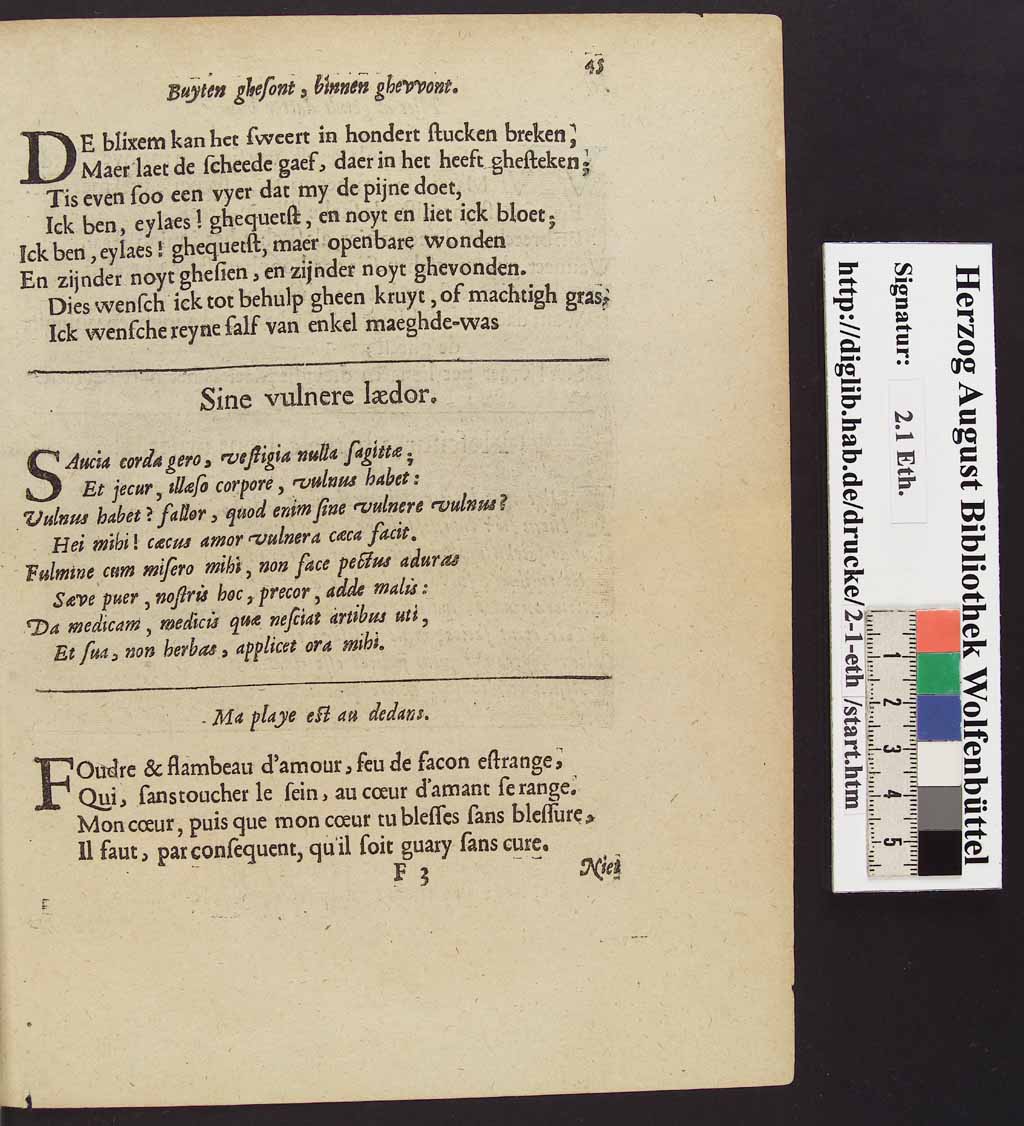 45
Buyten gheſont, binnen ghevvont.
DE blixem kan het ſweert in hondert ſtucken breken,
Maer laet de ſcheede gaef, daer in het heeft gheſteken;
Tis even ſoo een vyer dat my de pijne doet,
Ick ben, eylaes! ghequetſt, en noyt en liet ick bloet;
Ick ben, eylaes! ghequetſt, maer openbare wonden
En zijnder noyt gheſien, en zijnder noyt ghevonden.
Dies wenſch ick tot behulp gheen kruyt, of machtigh gras,
Ick wenſche reyne ſalf van enkel maeghde-was
Sine vulnere lædor.
SAucia corda gero, veſtigia nulla ſagittæ;
Et jecur, illæſo corpore, vulnus habet:
Vulnus habet? fallor, quod enim ſine vulnere vulnus?
Hei mihi! cæcus amor vulnera cæca facit.
Fulmine cum miſero mihi, non face pectus aduras
Sæve puer, noſtris hoc, precor, adde malis:
Da medicam, medicis quæ neſciat artibus uti,
Et ſua, non herbas, applicet ora mihi.
Ma playe eſt au dedans.
FOudre & flambeau d'amour, feu de facon eſtrange,
Qui, ſans toucher le ſein, au cœur d'amant ſe range.
Mon cœur, puis que mon cœur tu bleſſes ſans bleſſure,
Il faut, par conſequent, qu'il ſoit guary ſans cure.
F 3
Niet
Herzog August Bibliothek Wolfenbüttel
Signatur: 2.1 Eth.
http://diglib.hab.de/drucke/2-1-eth/start.htm
1 2 3 4 5